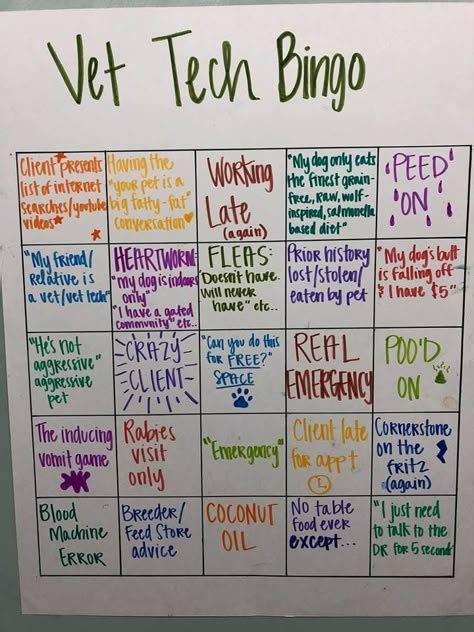 Vet Tech Bingo
Client presents
list of internet
searches/youtube
videos
Having the
"your pet is a
big fatty-fat"
conversation
Working
Late
(again)
"My dog only eats
the finest grain-
free, raw, wolf-
inspired, salmonella
based diet"
PEED
ON
"My friend/
Relative is
a vet/vet tech"
HEARTWORM:
"my dog is indoors
only"
"I have a gated
community" etc..
FLEAS:
Doesn't have
will never
have" etc..
Prior history
lost/stolen/
eaten by pet
"My dog's butt
is falling off
& I have $5"
"He's not
aggressive"
aggressive
pet
CRAZY
CLIENT
"Can you do this
for FREE?"
SPACE
REAL
EMERGENCY
POO'D
ON
The inducing
vomit game
Rabies
visit
only
"Emergency"
Client late
for appt
Cornerstone
on the
fritz
(again)
Blood
Machine
ERROR
Breeder/
Feed Store
advice
COCONUT
OIL
No table
food ever
except...
"I just need
to talk to the
DR for 5 seconds"